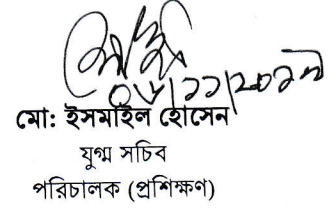 ০৮/১১/২০১৭
মো: ইসমাইল হোসেন
যুগ্ম সচিব
পরিচালক (প্রশিক্ষণ)